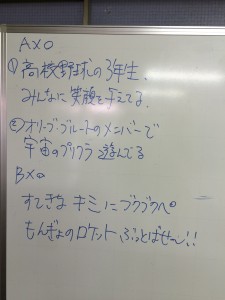 AXO
① 高校野球の3年生、
みんなに実顔を与えてる。
② オリーブ・ブルートのメンバーで
宇宙のプリクラを遊んでる
BXO
すてきな キミ にブウブウペ
もんぎょのロケット ぶっとばせ〜!!